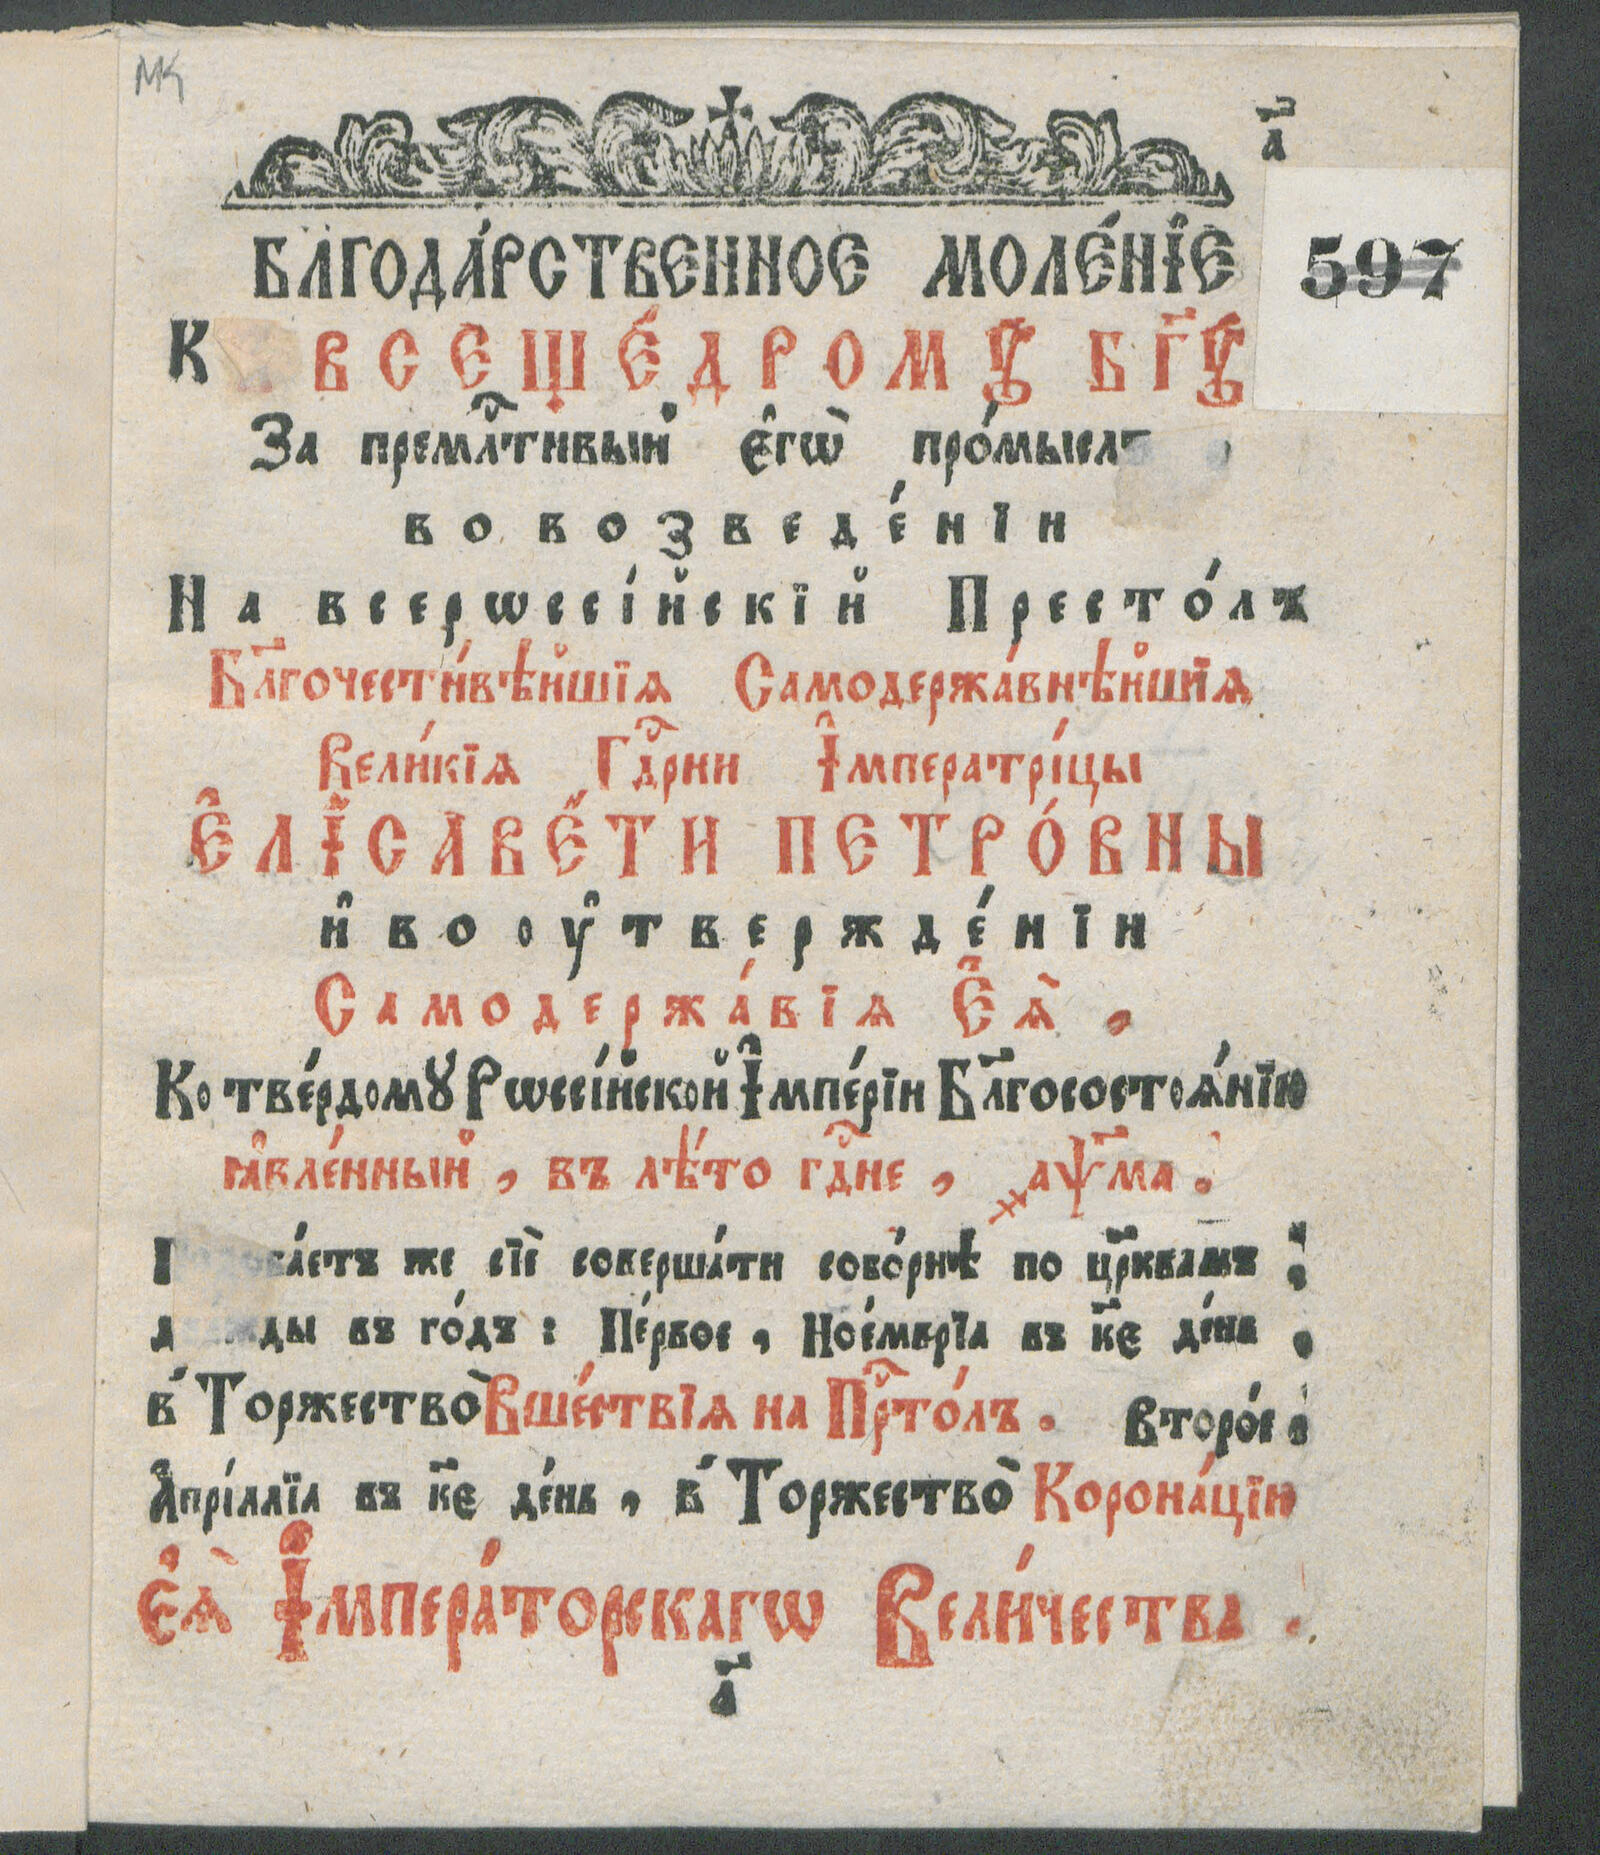 МК
а҃
597
БЛГОДА́РСТВЕННОЕ МОЛЕ́НЇЕ
К ВСЕЩЕ́ДРОМꙋ БГ҃ꙋ
За премлⷭ҇тивый є҆гѡ̀ про́мысл
во возведе́нїи
На всерѡссі́йскїй Престо́лъ
Бл҃гочести́вѣйшїѧ Самодержа́внѣйшїѧ
Вели́кїѧ Гдⷭ҇рни І҆мператрі́цы
Є҆ЛІ҆САВЕ́ТИ ПЕТРО́ВНЫ
и҆ во оу҆твержде́нїи
Самодержа́вїѧ Є҆ѧ̀ ,
Ко тве́рдомꙋ Рѡссі́йской І҆мпе́рїи Бл҃госостоѧ́нїю
ꙗ҆вле́нный , въ лѣ́то гдⷭ҇не , ҂аѱ҃ма .
же сїѐ соверша́ти собо́рнѣ по цр҃квамъ :
въ го́дъ : Пе́рвое , Ное́мврїа въ к҃є де́нь ,
в̾ Торжество̀ Вше́ствїѧ на Прⷭ҇то́лъ . Второ́е :
А҆прі́ллїа въ к҃є де́нь , в̾ Торжество̀ Корона́цїю
Є҆ѧ̀ І҆мпера́торскагѡ Вели́чества .
а҃